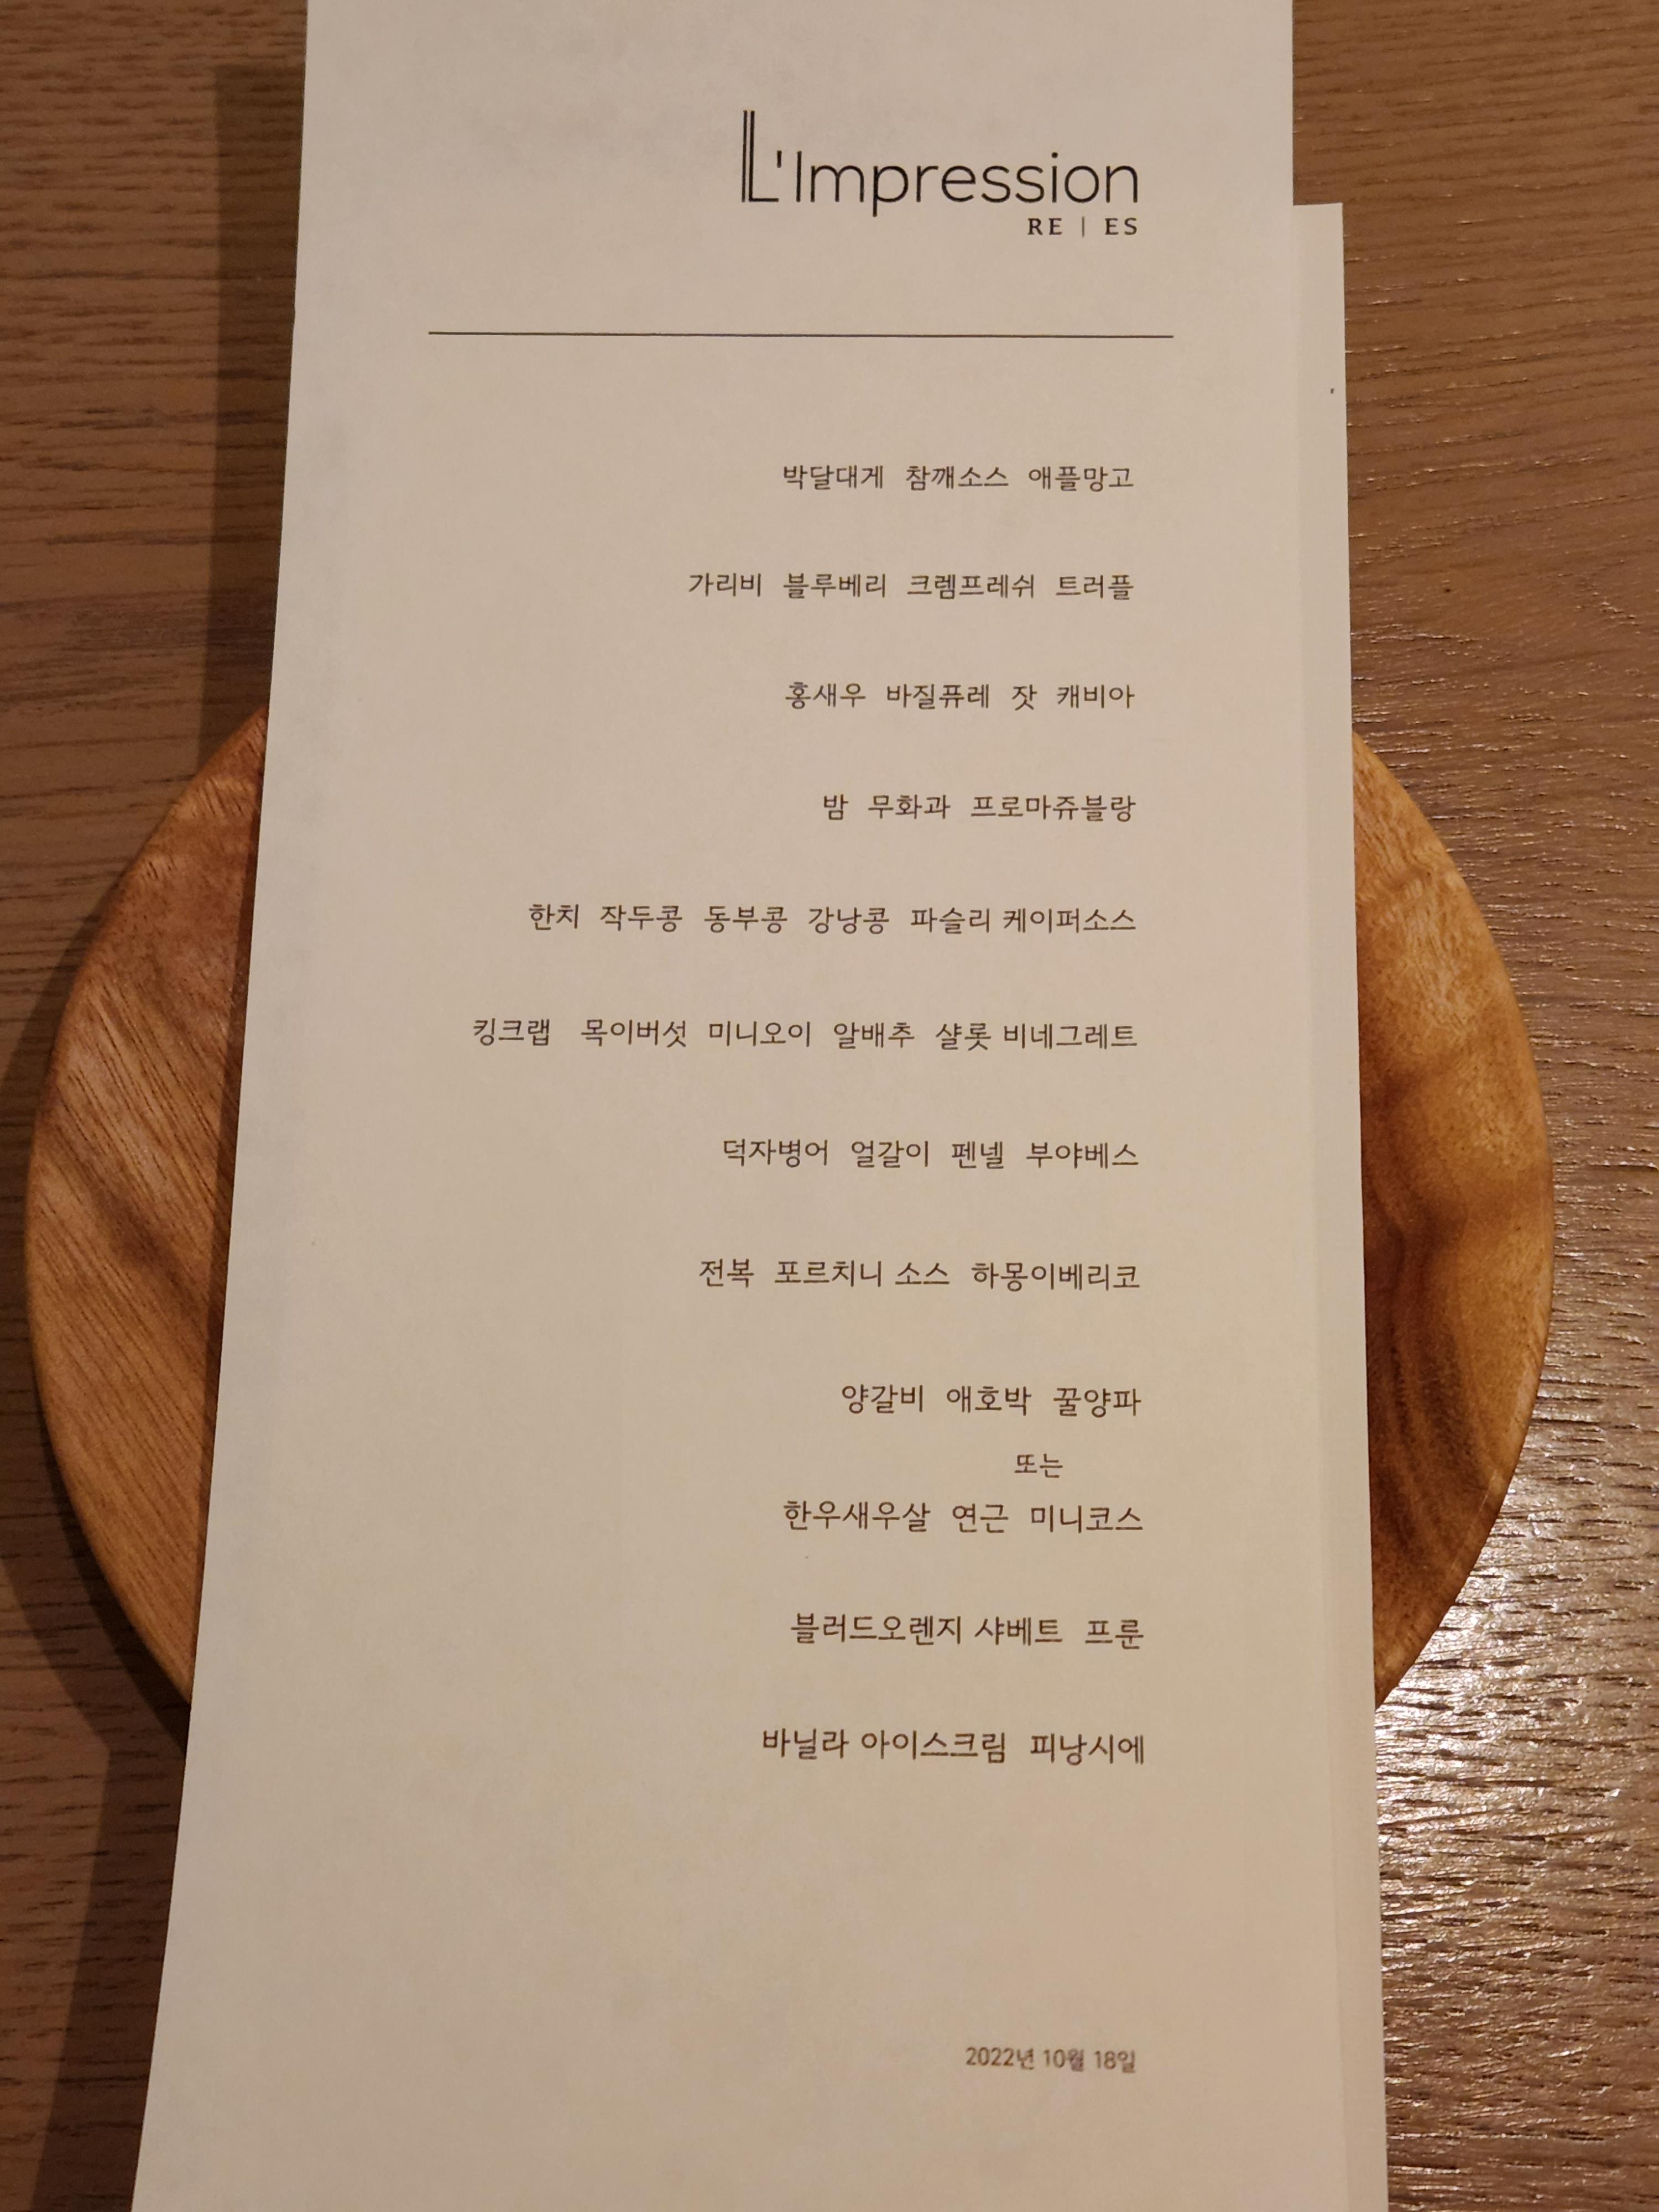 L'Impression
RE | ES
박달대게 참깨소스 애플망고
가리비 블루베리 크렘프레쉬 트러플
홍새우 바질퓨레 잣 캐비아
밤 무화과 프로마쥬블랑
한치 작두콩 동부콩 강낭콩 파슬리 케이퍼소스
킹크랩 목이버섯 미니오이 알배추 샬롯 비네그레트
덕자병어 얼갈이 펜넬 부야베스
전복 포르치니 소스 하몽이베리코
양갈비 애호박 꿀양파
또는
한우새우살 연근 미니코스
블러드오렌지 샤베트 프룬
바닐라 아이스크림 피낭시에
2022년 10월 18일